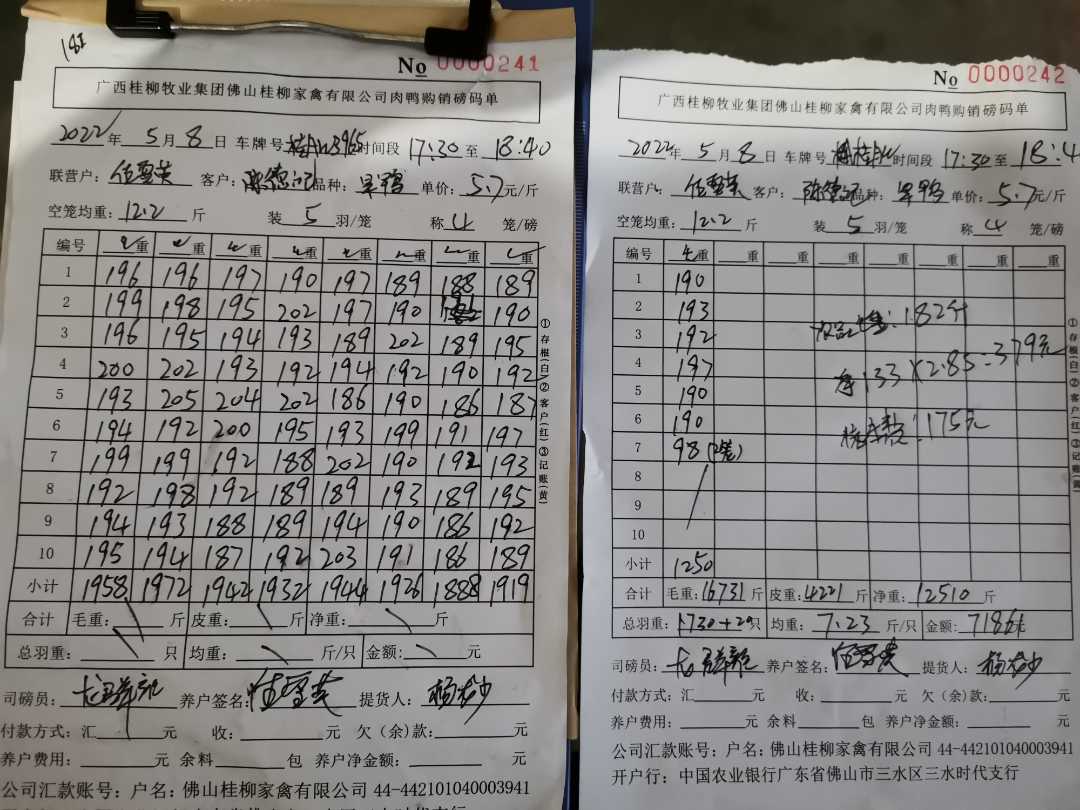 181
No 0000241
广西桂柳牧业集团佛山桂柳家禽有限公司肉鸭购销磅码单
2022年 5月 8日 车牌号 时间段 17:30 至 18:40
联营户: 客户: 品种: 单价: 5.7元/斤
空笼均重: 12.2 斤 装 5 羽/笼 称 4 笼/磅
编号 重 重 重 重 重 重 重 重
1 196 196 197 190 197 189 188 189
2 199 198 195 202 197 190 191 190
3 196 195 194 193 189 202 189 195
4 200 202 193 192 194 192 190 192
5 193 205 204 202 186 190 186 187
6 194 192 200 195 193 199 191 197
7 199 199 192 188 202 190 192 193
8 192 198 192 189 189 193 189 195
9 194 193 188 189 194 190 186 192
10 195 194 187 192 203 191 186 189
小计 1958 1972 1942 1932 1944 1926 1888 1919
合计 毛重: 斤 皮重: 斤 净重: 斤
总羽重: 只 均重: 斤/只 金额: 元
司磅员: 养户签名: 提货人:
付款方式: 汇 元 收: 元 欠(余)款: 元
养户费用: 元 余料 包 养户净金额: 元
公司汇款账号: 户名: 佛山桂柳家禽有限公司 44-442101040003941
①存根(白)②客户(红)③记账(黄)
No 0000242
广西桂柳牧业集团佛山桂柳家禽有限公司肉鸭购销磅码单
2022年 5月 8日 车牌号 时间段 17:30 至 18:4
联营户: 客户: 品种: 单价: 5.7元/斤
空笼均重: 12.2 斤 装 5 羽/笼 称 4 笼/磅
编号 重 重 重 重 重 重 重 重
1 190
2 193
3 192
4 197
5 190
6 190
7 98
8
9
10
: 182斤
133×2.85=379元
: 175元
小计 1250
合计 毛重: 16731 斤 皮重: 4221 斤 净重: 12510 斤
总羽重: 1730+20只 均重: 7.23 斤/只 金额:
司磅员: 养户签名: 提货人:
付款方式: 汇 元 收: 元 欠(余)款: 元
养户费用: 元 余料 包 养户净金额: 元
公司汇款账号: 户名: 佛山桂柳家禽有限公司 44-442101040003941
开户行: 中国农业银行广东省佛山市三水区三水时代支行
①存根(白)②客户(红)③记账(黄)